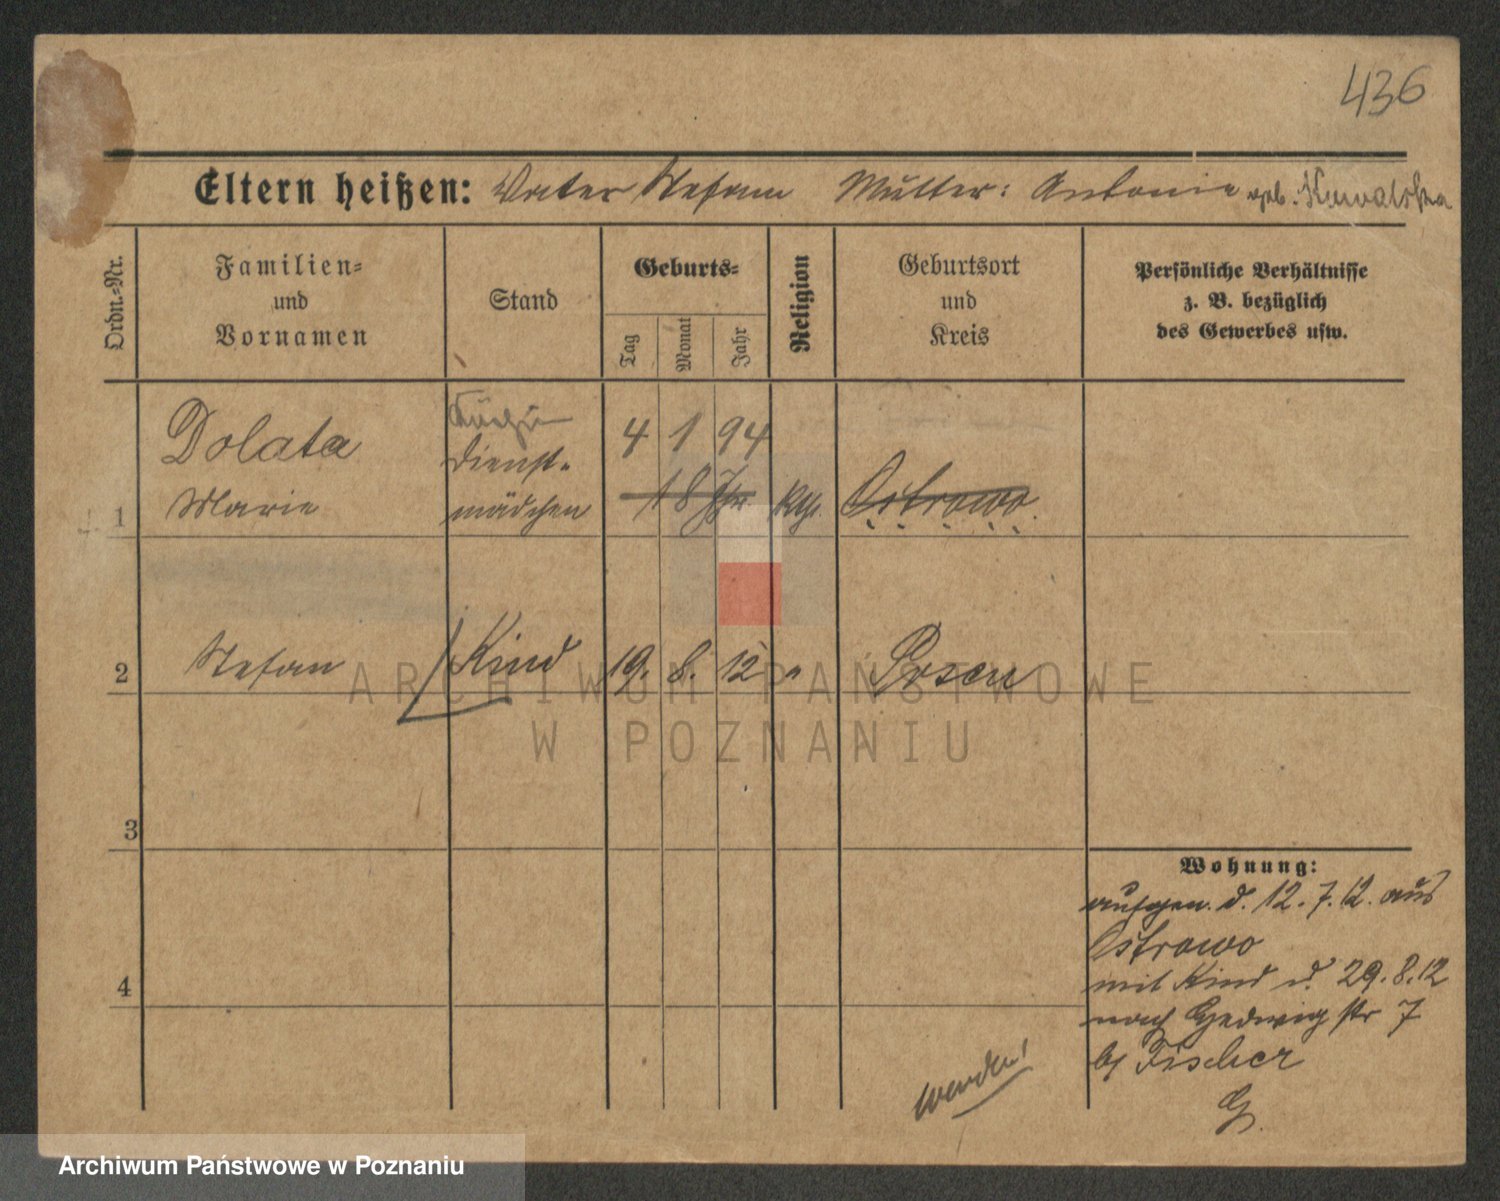 436
Eltern heißen: Vater Stefan Mutter: Antonie geb. Kowalska
Ordn.-Nr.
Familien-
und
Vornamen
Stand
Geburts-
Tag
Monat
Jahr
Religion
Geburtsort
und
Kreis
Persönliche Verhältnisse
z. B. bezüglich
des Gewerbes usw.
1
Dolata
Marie
Dienst-
mädchen
4 1 94
18 Jhr.
kth.
Ostrowo
2
Stefan
Kind
19. 8. 12
"
Posen
3
4
Wohnung:
aufgen. d. 12.7.12. aus
Ostrowo
mit Kind d. 29.8.12
nach Hedwig str 7
bei Fischer
G.
wenden!
ARCHIWUM PAŃSTWOWE
W POZNANIU
Archiwum Państwowe w Poznaniu